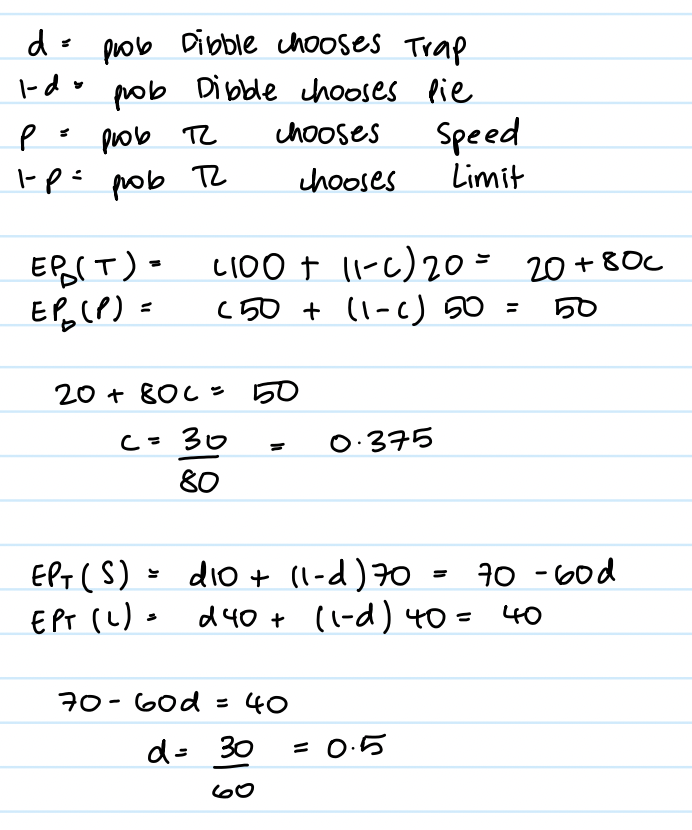 d = prob Dibble chooses Trap
1-d = prob Dibble chooses Pie
p = prob TL chooses Speed
1-p = prob TL chooses Limit
EP_D(T) = c100 + (1-c)20 = 20 + 80c
EP_D(P) = c50 + (1-c) 50 = 50
20 + 80c = 50
c = 30/80 = 0.375
EP_T(S) = d10 + (1-d)70 = 70 - 60d
EP_T(L) = d40 + (1-d) 40 = 40
70 - 60d = 40
d = 30/60 = 0.5